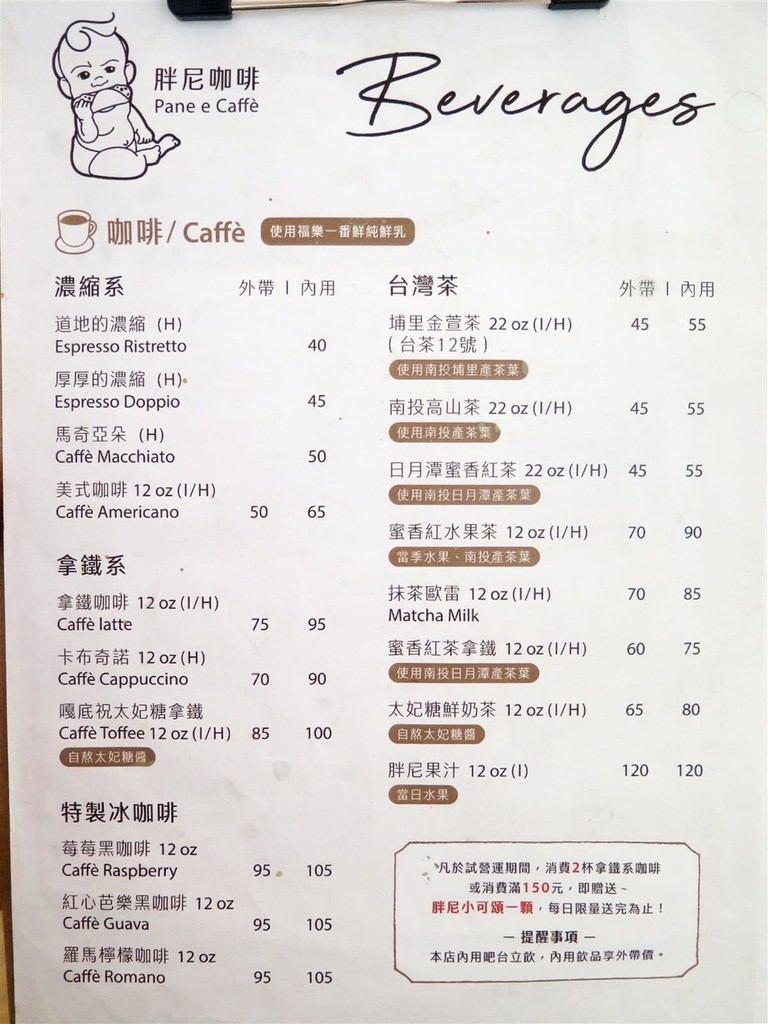 胖尼咖啡
Pane e Caffè
Beverages
咖啡/ Caffè 使用福樂一番鮮純鮮乳
濃縮系 外帶 | 內用
道地的濃縮 (H)
Espresso Ristretto 40
厚厚的濃縮 (H)
Espresso Doppio 45
馬奇亞朵 (H)
Caffè Macchiato 50
美式咖啡 12 oz (I/H)
Caffè Americano 50 65
拿鐵系
拿鐵咖啡 12 oz (I/H)
Caffè latte 75 95
卡布奇諾 12 oz (H)
Caffè Cappuccino 70 90
嘎底祝太妃糖拿鐵
Caffè Toffee 12 oz (I/H) 85 100
自熬太妃糖醬
特製冰咖啡
莓莓黑咖啡 12 oz
Caffè Raspberry 95 105
紅心芭樂黑咖啡 12 oz
Caffè Guava 95 105
羅馬檸檬咖啡 12 oz
Caffè Romano 95 105
台灣茶 外帶 | 內用
埔里金萱茶 22 oz (I/H) 45 55
( 台茶12號 )
使用南投埔里產茶葉
南投高山茶 22 oz (I/H) 45 55
使用南投產茶葉
日月潭蜜香紅茶 22 oz (I/H) 45 55
使用南投日月潭產茶葉
蜜香紅水果茶 12 oz (I/H) 70 90
當季水果、南投產茶葉
抹茶歐雷 12 oz (I/H) 70 85
Matcha Milk
蜜香紅茶拿鐵 12 oz (I/H) 60 75
使用南投日月潭產茶葉
太妃糖鮮奶茶 12 oz (I/H) 65 80
自熬太妃糖醬
胖尼果汁 12 oz (I) 120 120
當日水果
凡於試營運期間，消費2杯拿鐵系咖啡
或消費滿150元，即贈送~
胖尼小可頌一顆，每日限量送完為止！
— 提醒事項 —
本店內用吧台立飲，內用飲品享外帶價。